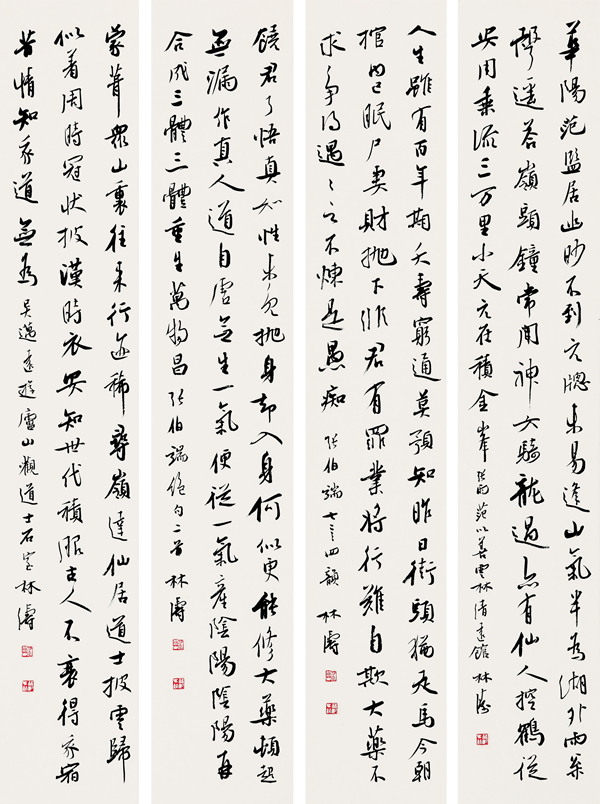 華陽范監居幽眇不到元牕未易逢山氣半為湖外雨松
聲遥答嶺頭鐘常聞神女騎龍過亦有仙人控鶴從
奚用乘流三万里小天元在積金峯 張雨范以善雲林清遠館 林濤
人生雖有百年期夭壽窮通莫預知昨日街頭猶走馬今朝
棺內已眠尸妻財抛下非君有罪業將行難自欺大藥不
求爭得遇〻之不煉是愚痴 張伯端七言四韻 林濤
饒君了悟真如性未免抛身却入身何似更能修大藥頓超
無漏作真人道自虛無生一氣便從一氣產陰陽陰陽再
合成三體三體重生萬物昌 張伯端絕句二首 林濤
蒙茸眾山裏往來行迹稀尋嶺達仙居道士披雲歸
似着周時冠狀披漢時衣安知世代積服古人不衰得我宿
昔情知我道無為 吳邁遠遊廬山觀道士石室 林濤